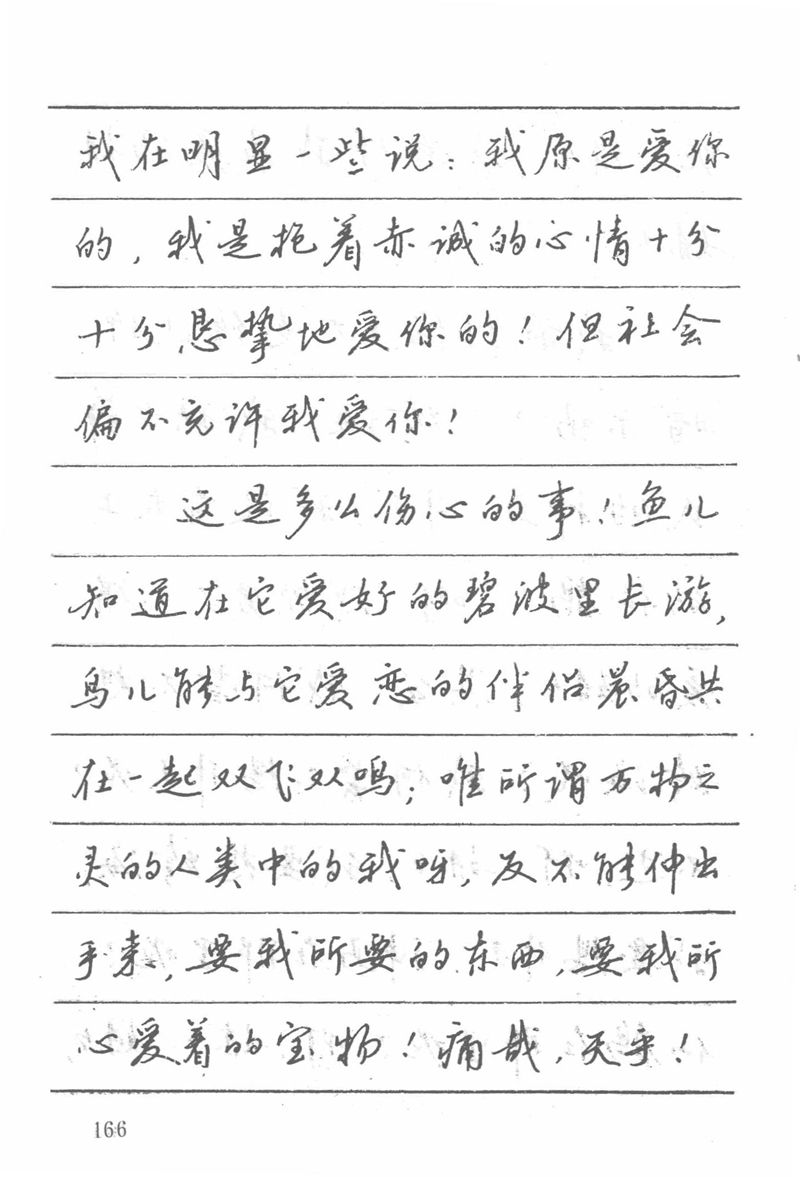 我在明显一些说：我原是爱你
的，我是抱着赤诚的心情十分
十分恳挚地爱你的！但社会
偏不充许我爱你！
这是多么伤心的事！鱼儿
知道在它爱好的碧波里长游，
鸟儿能与它爱恋的伴侣晨昏共
在一起双飞双鸣；唯所谓万物之
灵的人类中的我呀，反不能伸出
手来，要我所要的东西，要我所
心爱着的宝物！痛哉，天乎！
166